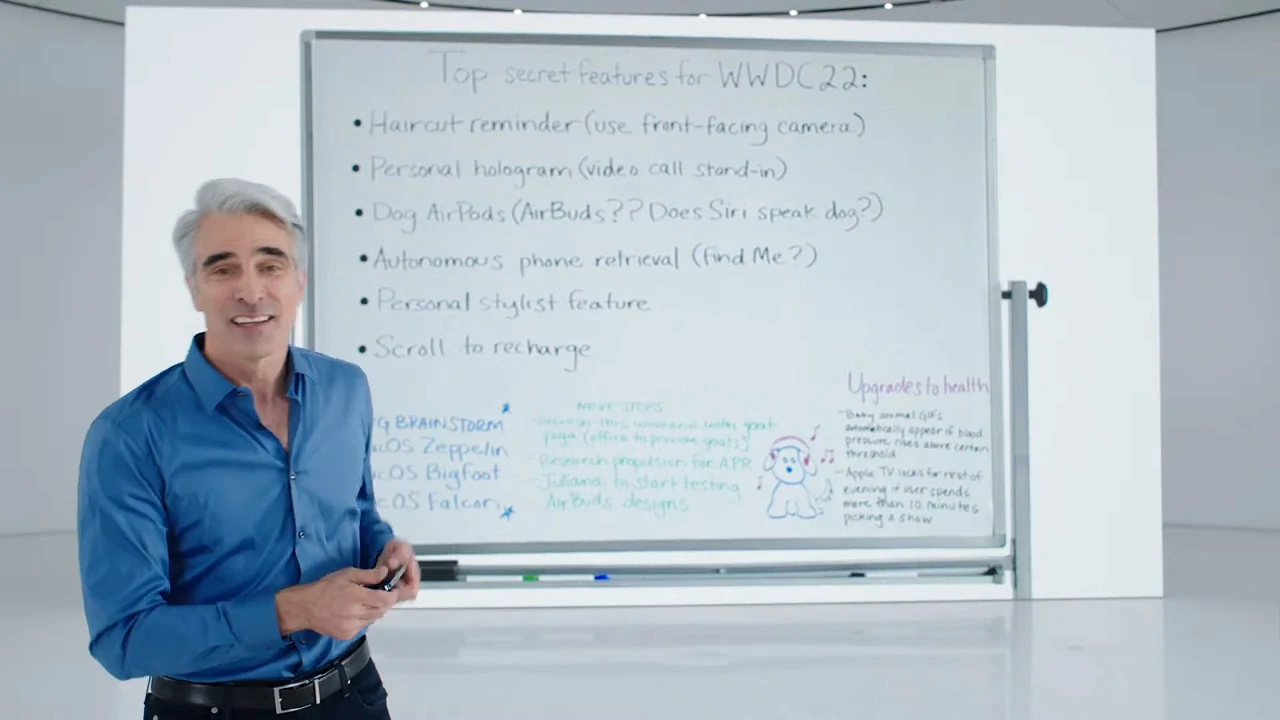 Top secret features for WWDC22:
• Haircut reminder (use front-facing camera)
• Personal hologram (video call stand-in)
• Dog AirPods (AirBuds?? Does Siri speak dog?)
• Autonomous phone retrieval (Find Me?)
• Personal stylist feature
• Scroll to recharge
BRAINSTORM
OS Zeppelin
OS Bigfoot
cOS Falcon
NEXT STEPS
this weekend with goat
yoga (office to provide goats!)
- Research propulsion for APR
- Juliana to start testing
AirBuds designs
Upgrades to health
- Baby animal GIFs
automatically appear if blood
pressure rises above certain
threshold
- Apple TV locks for rest of
evening if user spends
more than 10 minutes
picking a show